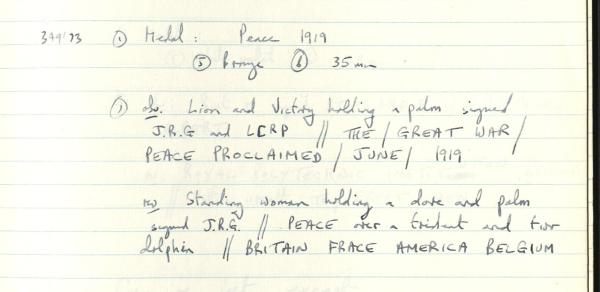 349'73 ① Medal: Peace 1919
⑤ Bronze ⑥ 35mm
① obv. Lion and Victory holding a palm signed
J.R.G and LCRP // THE / GREAT WAR /
PEACE PROCLAIMED / JUNE / 1919
rev Standing woman holding a dove and palm
signed J.R.G. // PEACE over a trident and two
dolphin // BRITAIN FRACE AMERICA BELGIUM